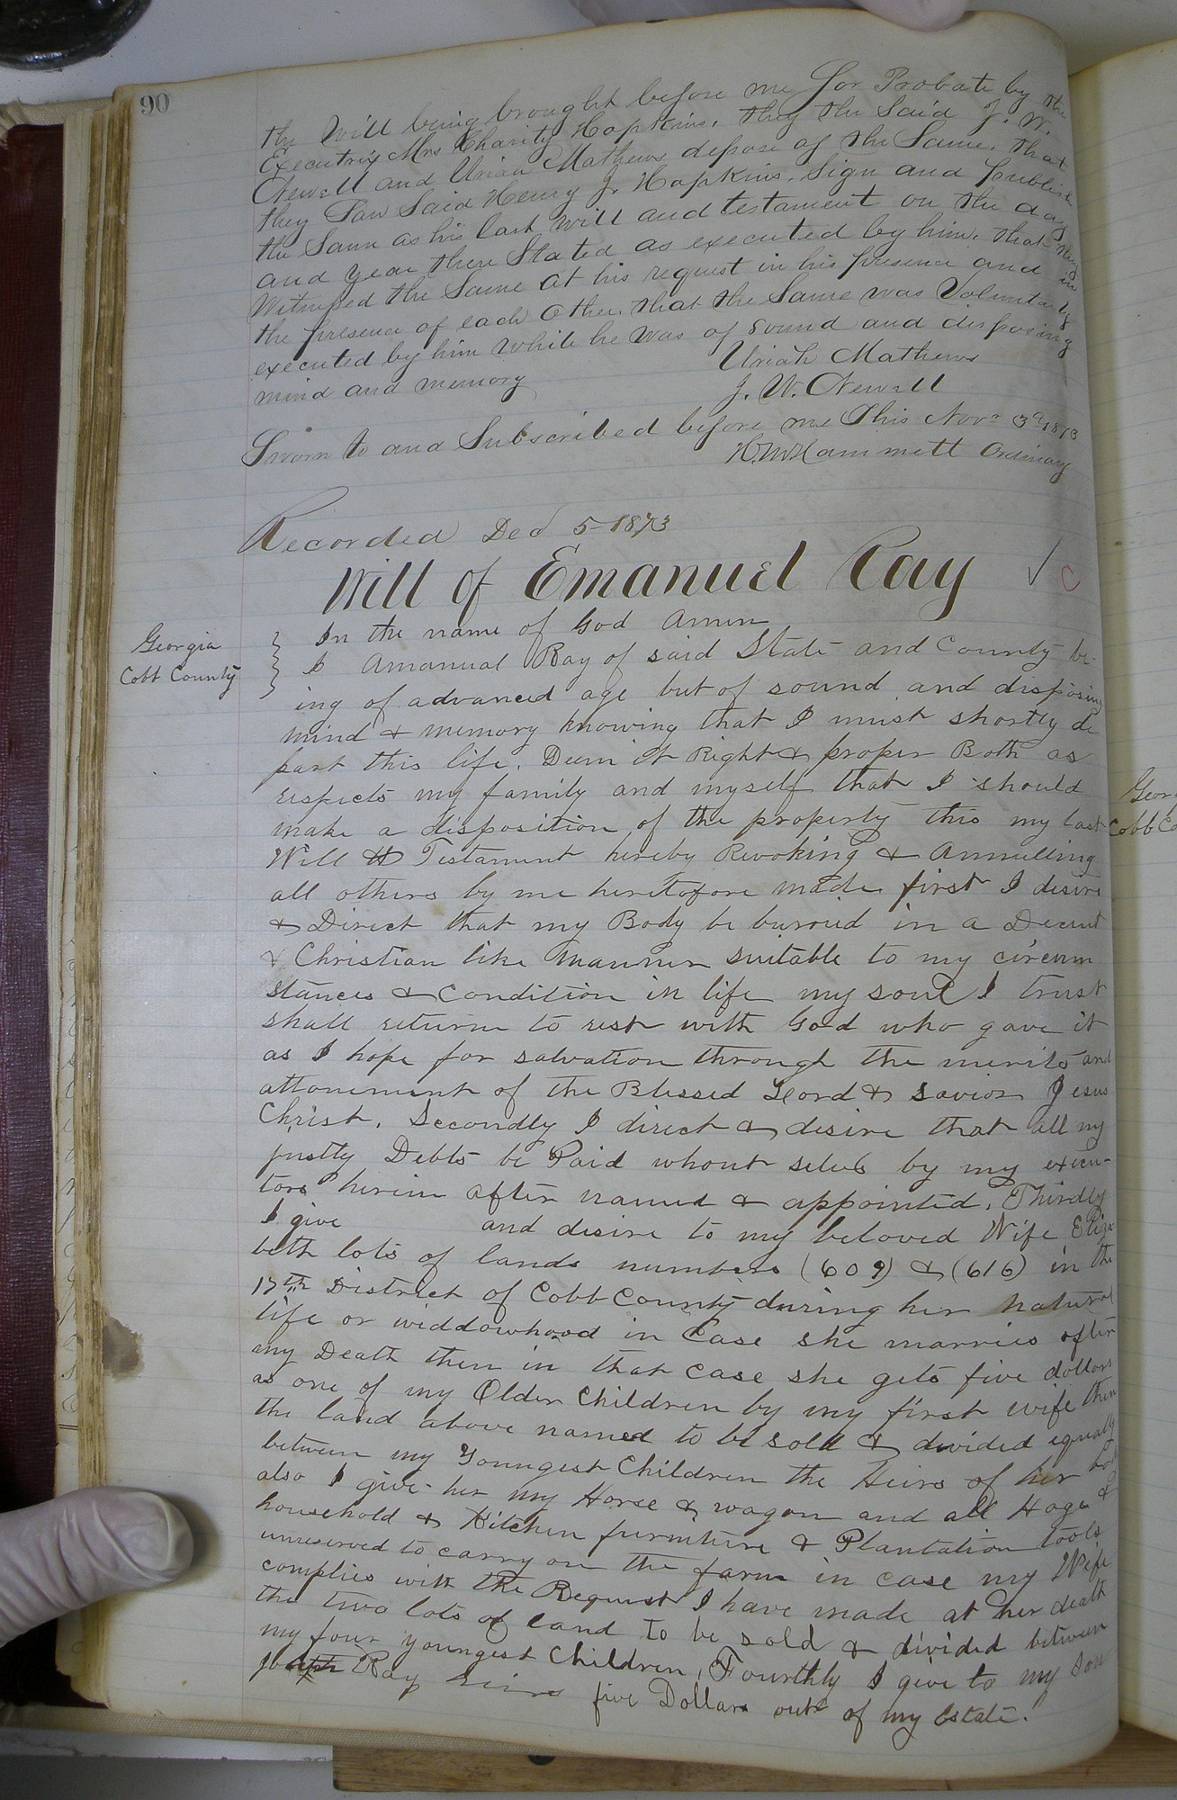 90
the Will being brought before me for Probate by the
Executrix Mrs Charity Hopkins. they the Said J. W.
Newell and Uriah Mathews depose of the Same. that
they Saw Said Henry J. Hopkins. Sign and publish
the Same as his last Will and testament on the day
and year there Stated as executed by him. that they
Witnessed the Same at his request in his presence and in
the presence of each other. that the Same was Voluntarily
executed by him while he was of Sound and disposing
mind and memory
Uriah Mathews
J. W. Newell
Sworn to and Subscribed before me This Nov 3d 1873
H. M. Hammett Ordinary
Recorded Dec 5 1873
Will of Emanuel Ray √ C
Georgia
Cobb County
In the name of God Amen
I Amanual Ray of said State and County be-
ing of advanced age but of sound and disposing
mind & memory knowing that I must shortly de
part this life. Deem it Right & proper Both as
respects my family and myself that I should
make a disposition of the property this my last
Will & Testament hereby Revoking & Annulling
all others by me heretofore made first I desire
& Direct that my Body be burried in a Decent
& Christian like Manner suitable to my circum
stances & condition in life my soul I trust
shall return to rest with God who gave it
as I hope for salvation through the merits and
attonement of the Blessed Lord & Savior Jesus
Christ. Secondly I direct & desire that all my
justly Debts be Paid by my execu-
tors herein after named & appointed. Thirdly
I give and desire to my beloved Wife Eliza
beth lots of lands numbers (609) & (616) in the
17th District of Cobb County during her natural
life or widdowhood in Case she marries after
my Death then in that case she gets five dollars
as one of my Older Children by my first wife then
the land above named to be sold & divided equally
between my Youngest Children the Heirs of her
also I give her my Horse & wagon and all Hogs &
household & Kitchen furniture & Plantation tools
unreserved to carry on the farm in case my Wife
complies with the Request I have made at her death
the two lots of land to be sold & divided between
my four youngest Children, Fourthly I give to my Son
Joseph Ray heirs five Dollars out of my Estate.
Georg
Cobb Co